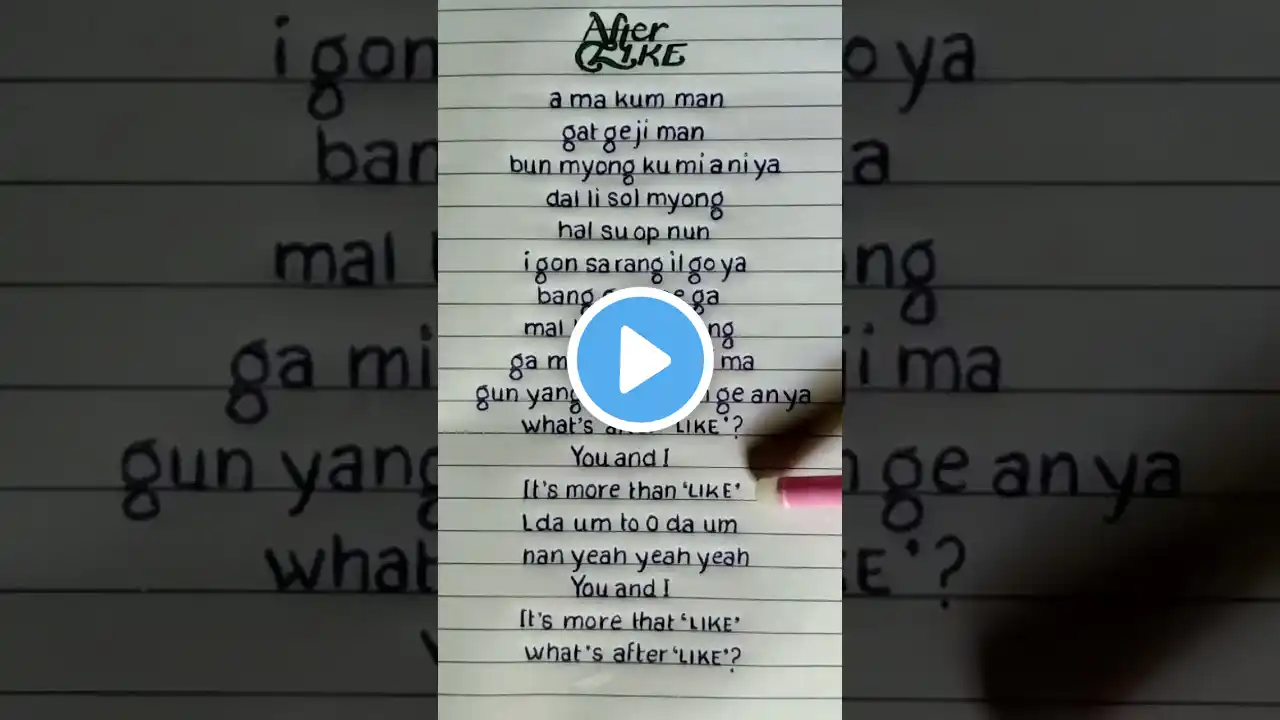 After
LIKE
a ma kum man
gat ge ji man
bun myong ku mi a ni ya
dal li sol myong
hal su op nun
i gon sa rang il go ya
bang ga
mal ng
ga m ma
gun yang ge an ya
what's 'LIKE'?
You and I
It's more than 'LIKE'
L da um to O da um
nan yeah yeah yeah
You and I
It's more that 'LIKE'
what's after 'LIKE'?